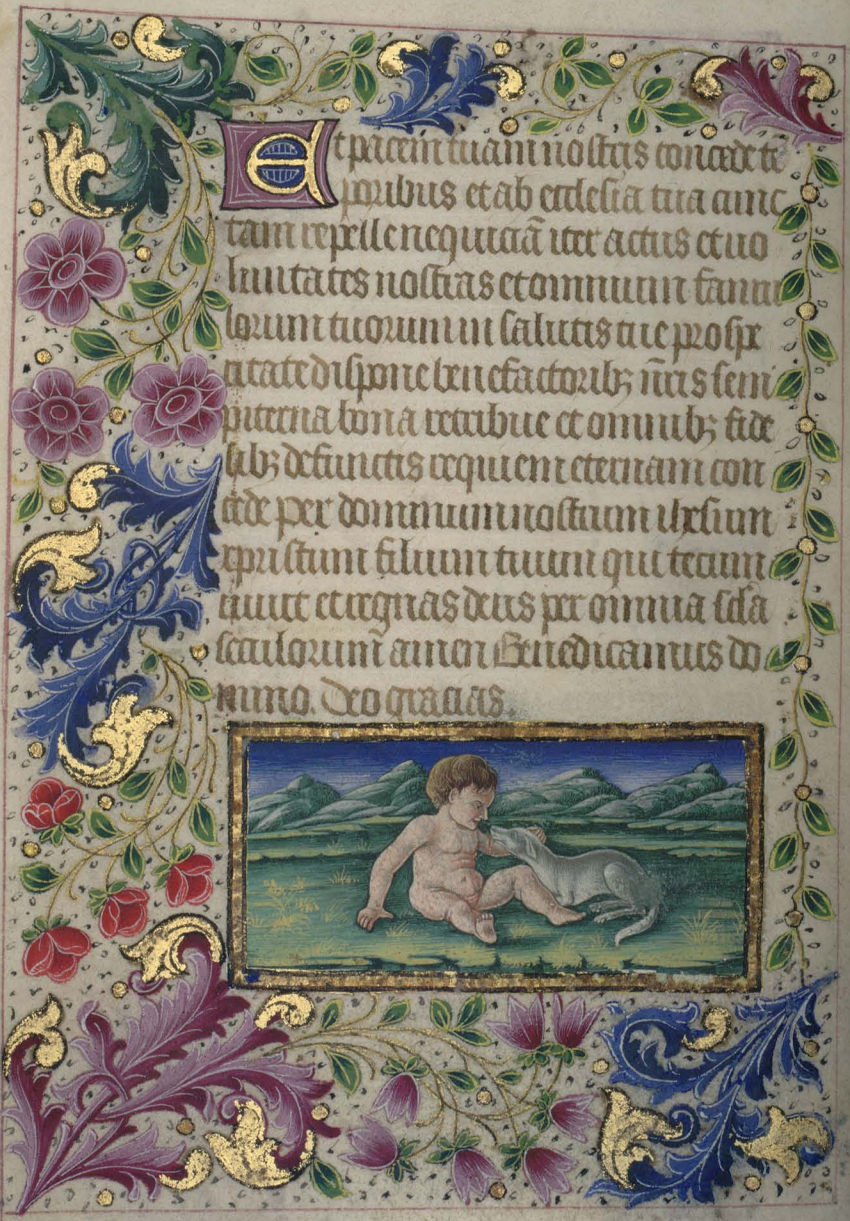 Et pacem tuam nostris concede tē
poribus et ab ecclesia tua cunc
tam repelle nequiciā iter actus et uo
luntates nostras et omnium famu
lorum tuorum in salutis tue prospe
ritate dispone benefactoribꝫ nr̄is sem
piterna bona retribue et omnibꝫ fide
libꝫ defunctis requiem eternam con
cede per dominum nostrum ihesum
xpristum filium tuum qui tecum
uiuit et regnas deus per omnia scl̄a
seculorum̄ amen Benedicamus do
mino. Deo gracias.